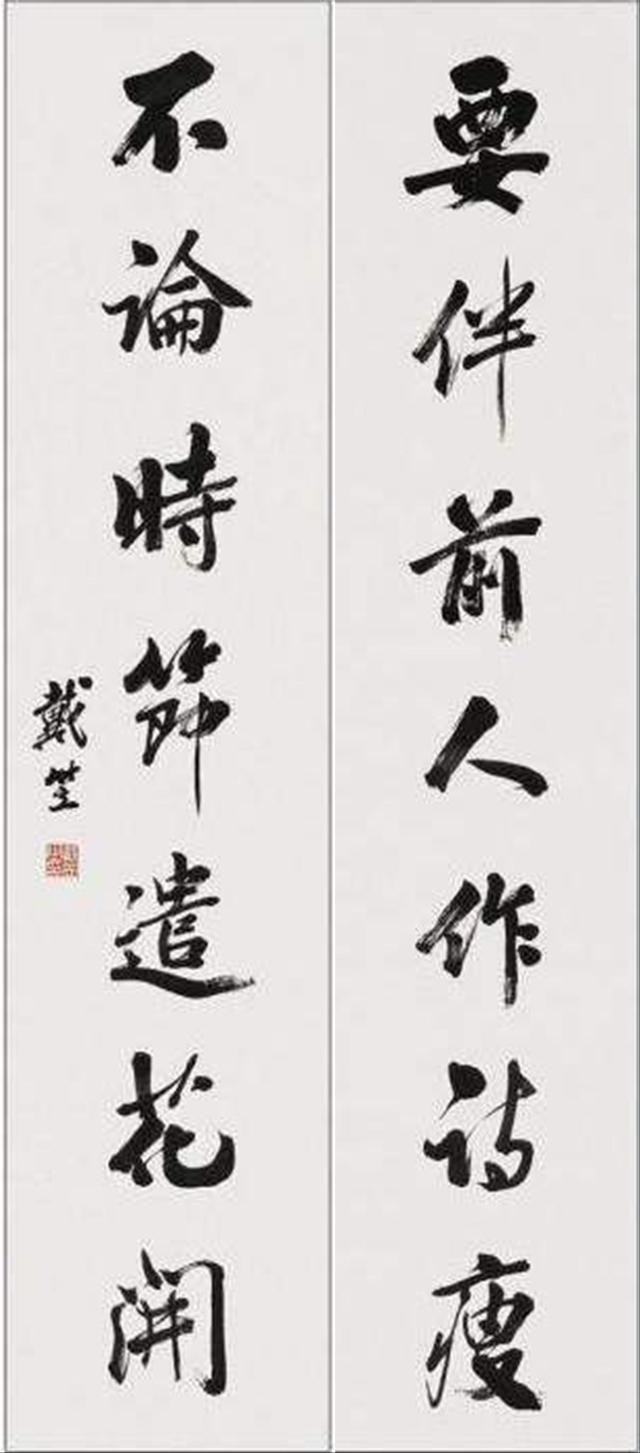 要伴前人作詩瘦
不論時節遣花開
戴笠